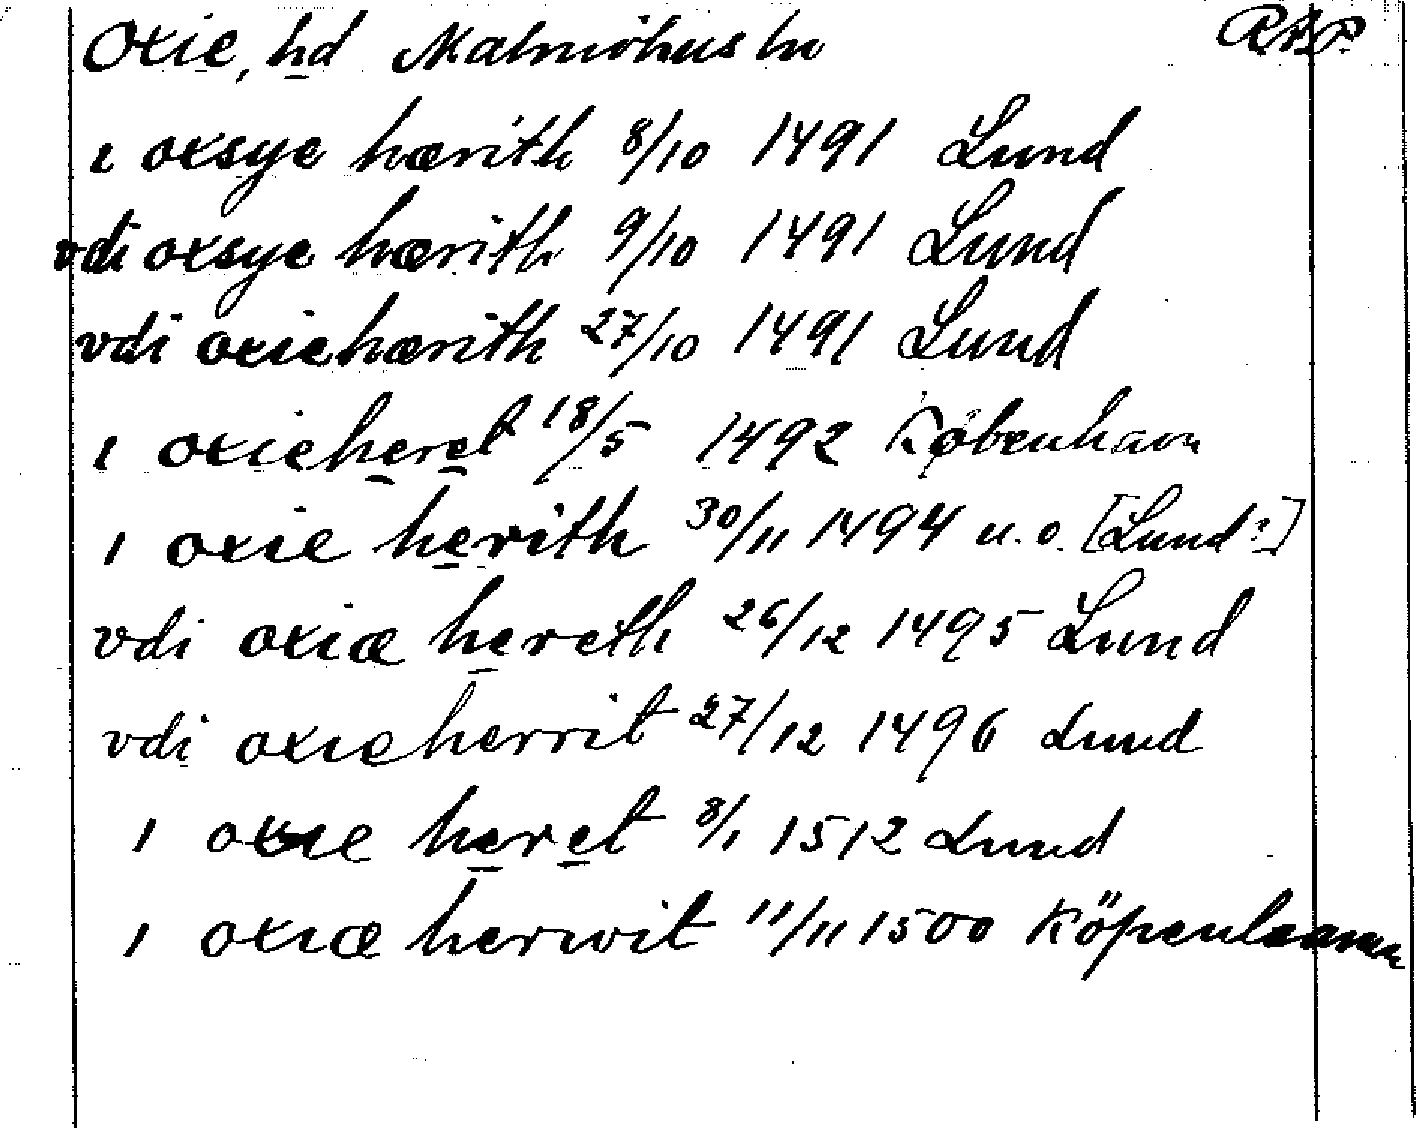 Oxie, hd Malmöhus ln RAP
i oxsye hærith 8/10 1491 Lund
vdi oxsye hærith 9/10 1491 Lund
vdi oxiehærith 27/10 1491 Lund
i oxieheret 18/5 1492 København
i oxie herith 30/11 1494 u.o. [Lund?]
vdi oxiæ hereth 26/12 1495 Lund
vdi oxieherrit 27/12 1496 Lund
i oxie heret 8/1 1512 Lund
i oxiæ herwit 11/11 1500